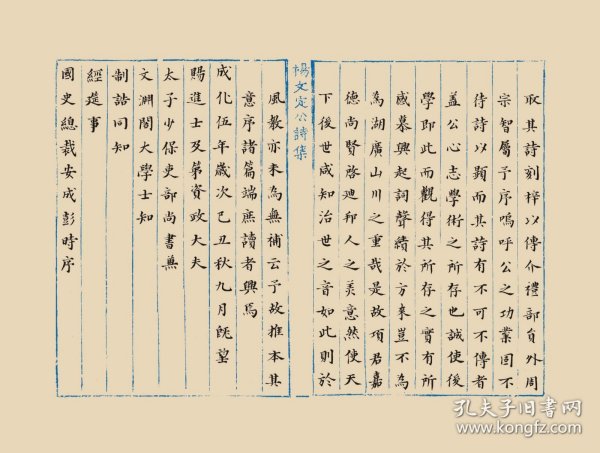 取其詩刻梓以傳介禮部員外周
宗智屬予序嗚呼公之功業固不
待詩以顯而其詩有不可不傳者
蓋公心志學術之所存也誠使後
學即此而觀得其所存之實有所
感慕興起詞聲績於方來豈不為
為湖廣山川之重哉是故項君嘉
德尚賢啓迪邦人之美意然使天
下後世咸知治世之音如此則於
楊文定公詩集
風教亦未為無補云予故推本其
意序諸篇端庶讀者興焉
成化伍年歲次己丑秋九月旣望
賜進士及第資政大夫
太子少保吏部尚書兼
文淵閣大學士知
制誥同知
經筵事
國史總裁安成彭時序
孔夫子旧书网
www.kongfz.com